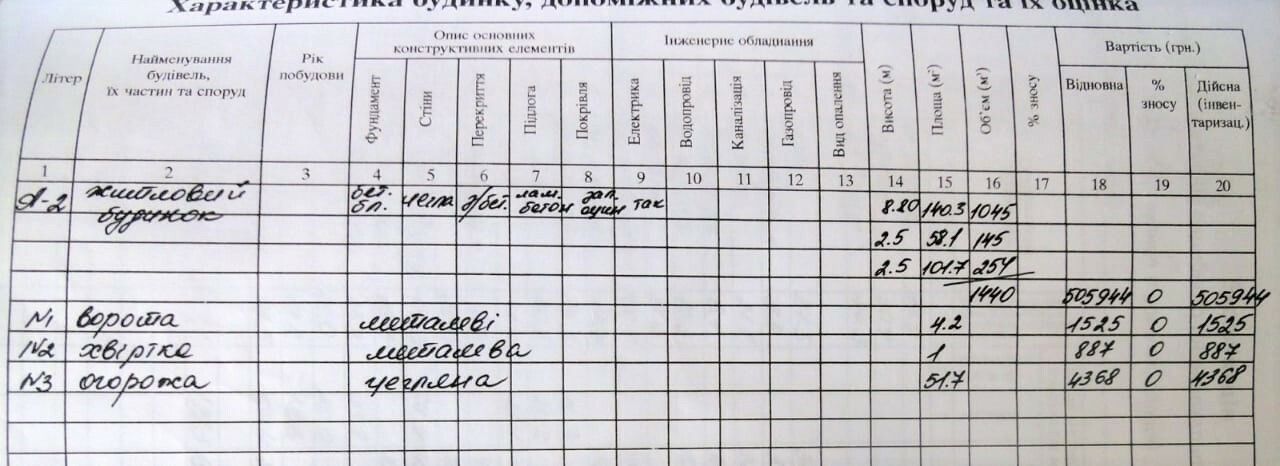 Характеристика будинку, допоміжних будівель та споруд та їх оцінка
Літер
Найменування
будівель,
їх частин та споруд
Рік
побудови
Опис основних
конструктивних елементів
Інженерне обладнання
Вартість (грн.)
Фундамент
Стіни
Перекриття
Підлога
Покрівля
Електрика
Водопровід
Каналізація
Газопровід
Вид опалення
Висота (м)
Площа (м²)
Об'єм (м³)
% зносу
Відновна
%
зносу
Дійсна
(інвен-
таризац.)
1 2 3 4 5 6 7 8 9 10 11 12 13 14 15 16 17 18 19 20
А-2 житловий бет. цегла з/бет. лам. так
будинок бл. бетон оцин 8.20 140.3 1045
2.5 58.1 145
2.5 101.7 254
1440 505944 0 505944
N1 ворота металеві 4.2 1525 0 1525
N2 хвіртка металева 1 887 0 887
N3 огорожа цегляна 51.7 4368 0 4368